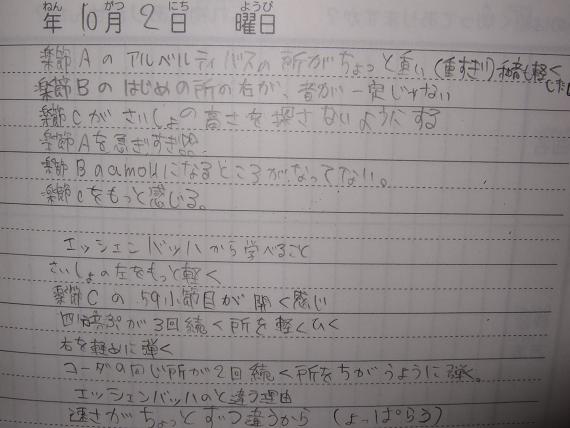 年 10月 2日 曜日
ねん がつ にち ようび
楽節Aのアルベルティバスの所がちょっと重い(重すぎ!)もっと軽く
楽節Bのはじめの所の右が、音が一定じゃない
楽節Cがさいしょの高さを探さないようにする
楽節Aを急ぎすぎ
楽節Bのamollになるところがなってない。
楽節Cをもっと感じる。
エッシェンバッハから学べること
さいしょの左をもっと軽く
楽節Cの59小節目が開く感じ
四分音ぷが3回続く所を軽くひく
右を軽めに弾く
コーダの同じ所が2回続く所をちがうように弾く。
エッシェンバッハのと違う理由
速さがちょっとずつ違うから (よっぱらう)